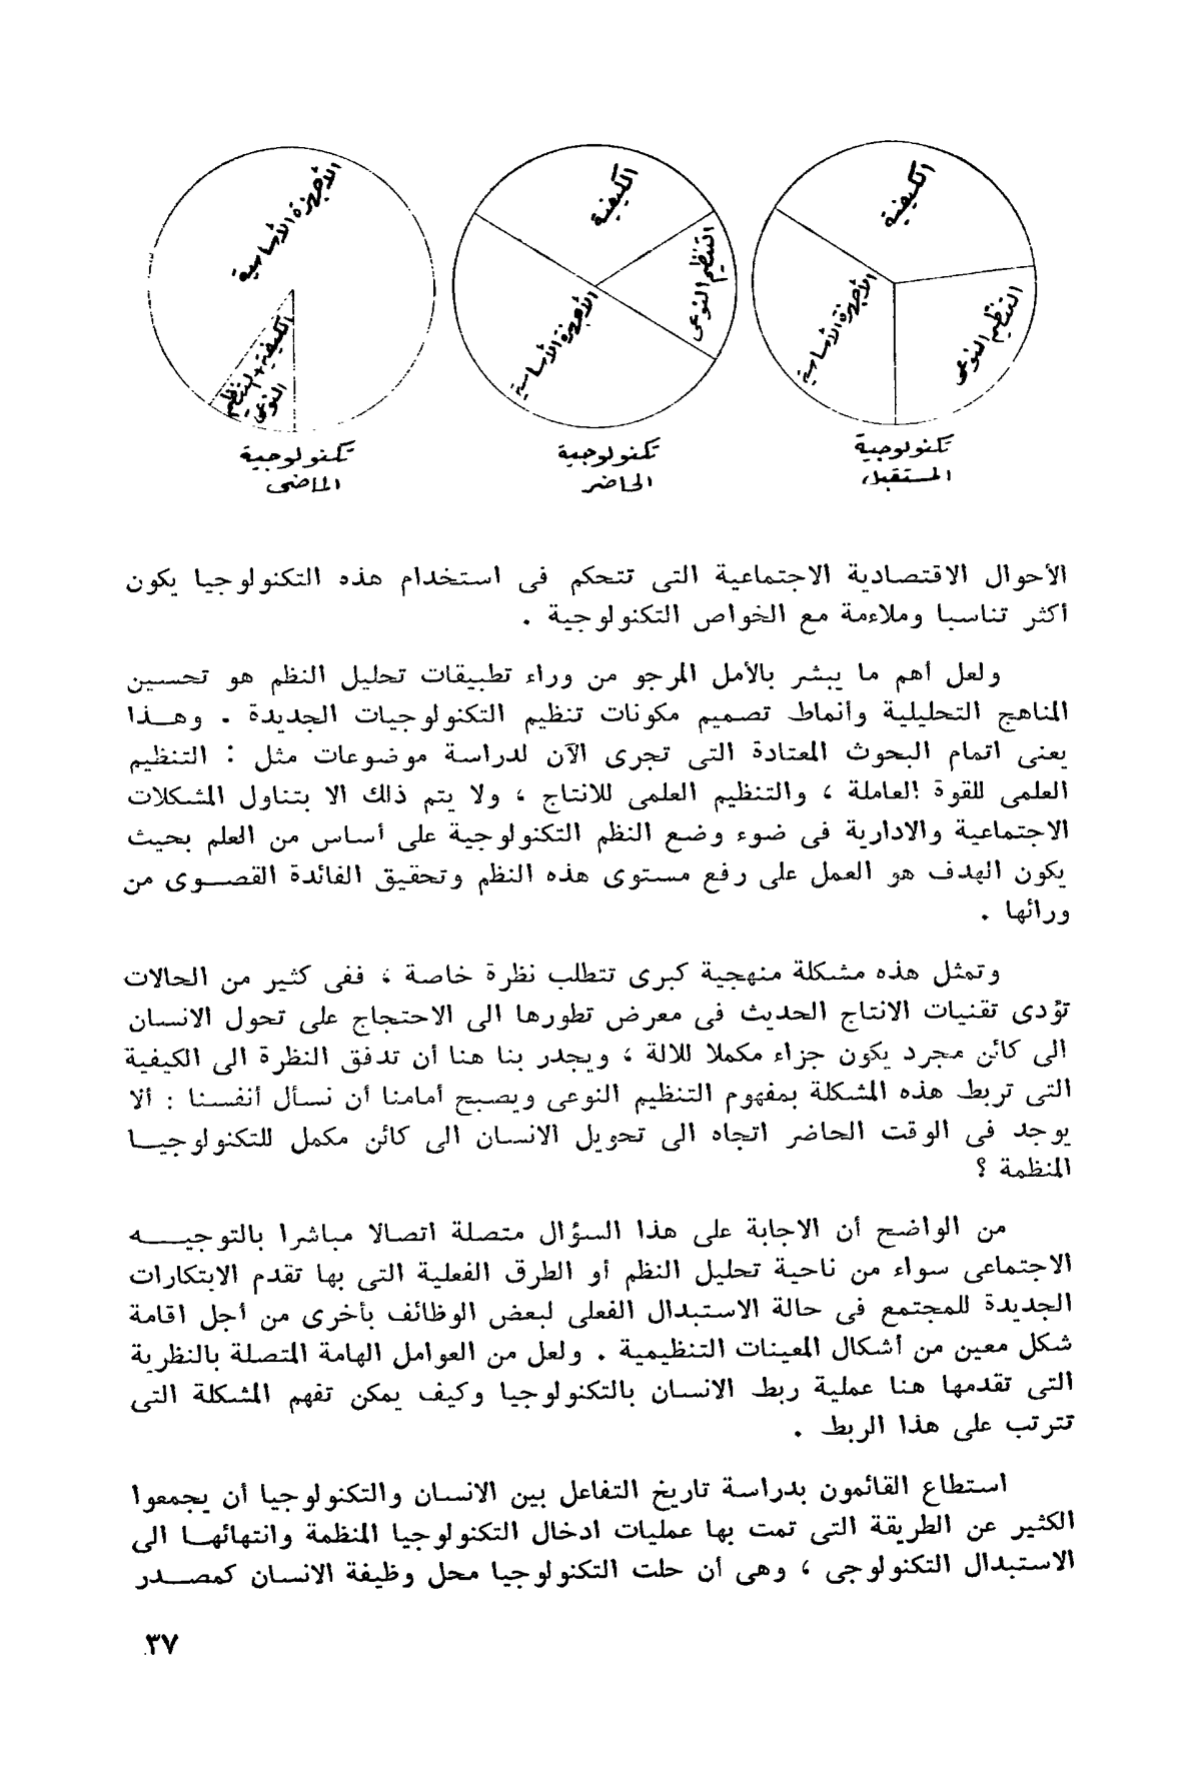 الكيفية
التنظيم النوعى
الأجهزة الأساسية
تكنولوجية
المستقبل
الكيفية
التنظيم النوعى
الأجهزة الأساسية
تكنولوجية
الحاضر
الأجهزة الأساسية
الكيفية + التنظيم
النوعى
تكنولوجية
الماضى
الأحوال الاقتصادية الاجتماعية التى تتحكم فى استخدام هذه التكنولوجيا يكون
أكثر تناسبا وملاءمة مع الخواص التكنولوجية .
ولعل أهم ما يبشر بالأمل المرجو من وراء تطبيقات تحليل النظم هو تحسين
المناهج التحليلية وأنماط تصميم مكونات تنظيم التكنولوجيات الجديدة . وهـذا
يعنى اتمام البحوث المعتادة التى تجرى الآن لدراسة موضوعات مثل : التنظيم
العلمى للقوة العاملة ، والتنظيم العلمى للانتاج ، ولا يتم ذلك الا بتناول المشكلات
الاجتماعية والادارية فى ضوء وضع النظم التكنولوجية على أساس من العلم بحيث
يكون الهدف هو العمل على رفع مستوى هذه النظم وتحقيق الفائدة القصـوى من
ورائها .
وتمثل هذه مشكلة منهجية كبرى تتطلب نظرة خاصة ، ففى كثير من الحالات
تؤدى تقنيات الانتاج الحديث فى معرض تطورها الى الاحتجاج على تحول الانسان
الى كائن مجرد يكون جزاء مكملا للالة ، ويجدر بنا هنا أن تدفق النظرة الى الكيفية
التى تربط هذه المشكلة بمفهوم التنظيم النوعى ويصبح أمامنا أن نسأل أنفسنا : ألا
يوجد فى الوقت الحاضر اتجاه الى تحويل الانسان الى كائن مكمل للتكنولوجيـا
المنظمة ؟
من الواضح أن الاجابة على هذا السؤال متصلة اتصالا مباشرا بالتوجيـــه
الاجتماعى سواء من ناحية تحليل النظم أو الطرق الفعلية التى بها تقدم الابتكارات
الجديدة للمجتمع فى حالة الاستبدال الفعلى لبعض الوظائف بأخرى من أجل اقامة
شكل معين من أشكال المعينات التنظيمية . ولعل من العوامل الهامة المتصلة بالنظرية
التى تقدمها هنا عملية ربط الانسان بالتكنولوجيا وكيف يمكن تفهم المشكلة التى
تترتب على هذا الربط .
استطاع القائمون بدراسة تاريخ التفاعل بين الانسان والتكنولوجيا أن يجمعوا
الكثير عن الطريقة التى تمت بها عمليات ادخال التكنولوجيا المنظمة وانتهائهـا الى
الاستبدال التكنولوجى ، وهى أن حلت التكنولوجيا محل وظيفة الانسان كمصـدر
٣٧